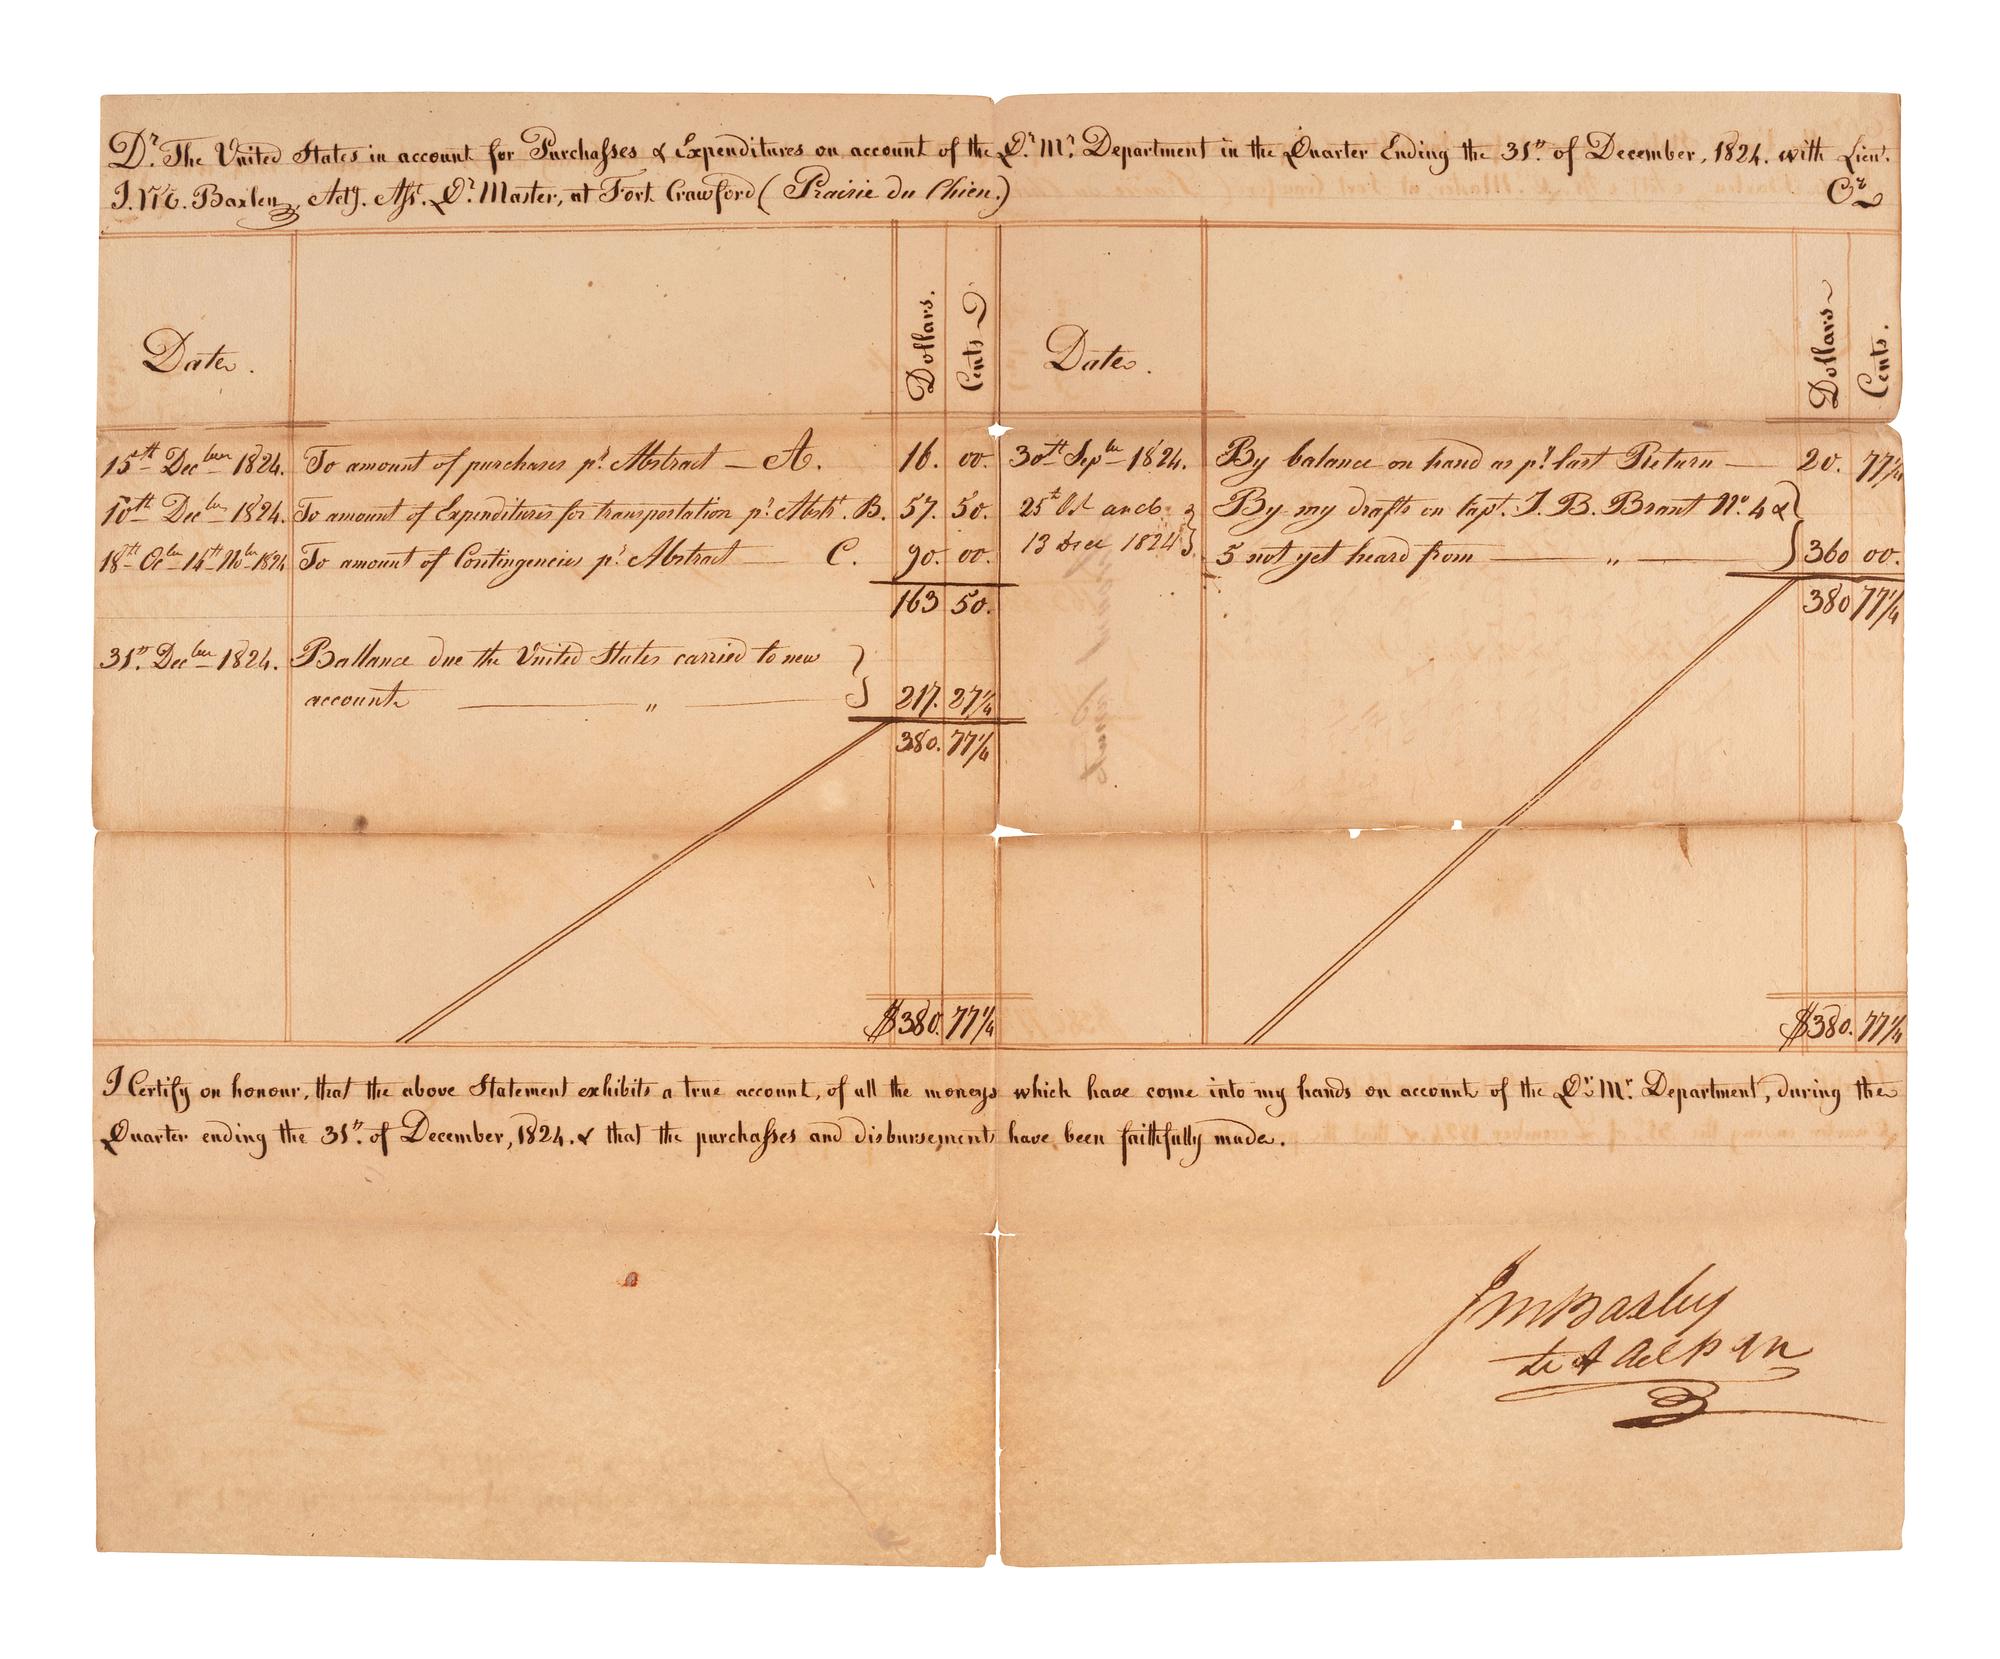 Dr. The United States in account for Purchasses & Expenditures on account of the Qr. Mr. Department in the Quarter Ending the 31st. of December, 1824. with Lieut.
J. M. Baxley, Actg. Asst. Qr. Master, at Fort Crawford (Prairie du Chien.) Cr
Date. Dollars. Cents Date. Dollars Cents.
15th Decber 1824. To amount of purchases pr. Abstract — A. 16. 00. 30th Sepber 1824. By balance on hand as pr. last Return — 20. 77 1/4
10th Decber 1824. To amount of Expenditures for transportation pr. Abstt. B. 57. 50. 25th Oct and By my drafts on Capt. J. B. Brant No. 4 &
18th Ocber 14th Nober 1824 To amount of Contingencies pr Abstract — C. 90. 00. 13 Dec 1824 5 not yet heard from — " — 360 00.
163 50. 380 77 1/4
31st. Decber 1824. Ballance due the United States carried to new
account — " — 217. 27 1/4
380. 77 1/4
$380. 77 1/4 $380. 77 1/4
I Certify on honour, that the above Statement exhibits a true account, of all the moneys which have come into my hands on account of the Qr. Mr. Department, during the
Quarter ending the 31st. of December, 1824. & that the purchasses and disbursements have been faithfully made.
J M Baxley